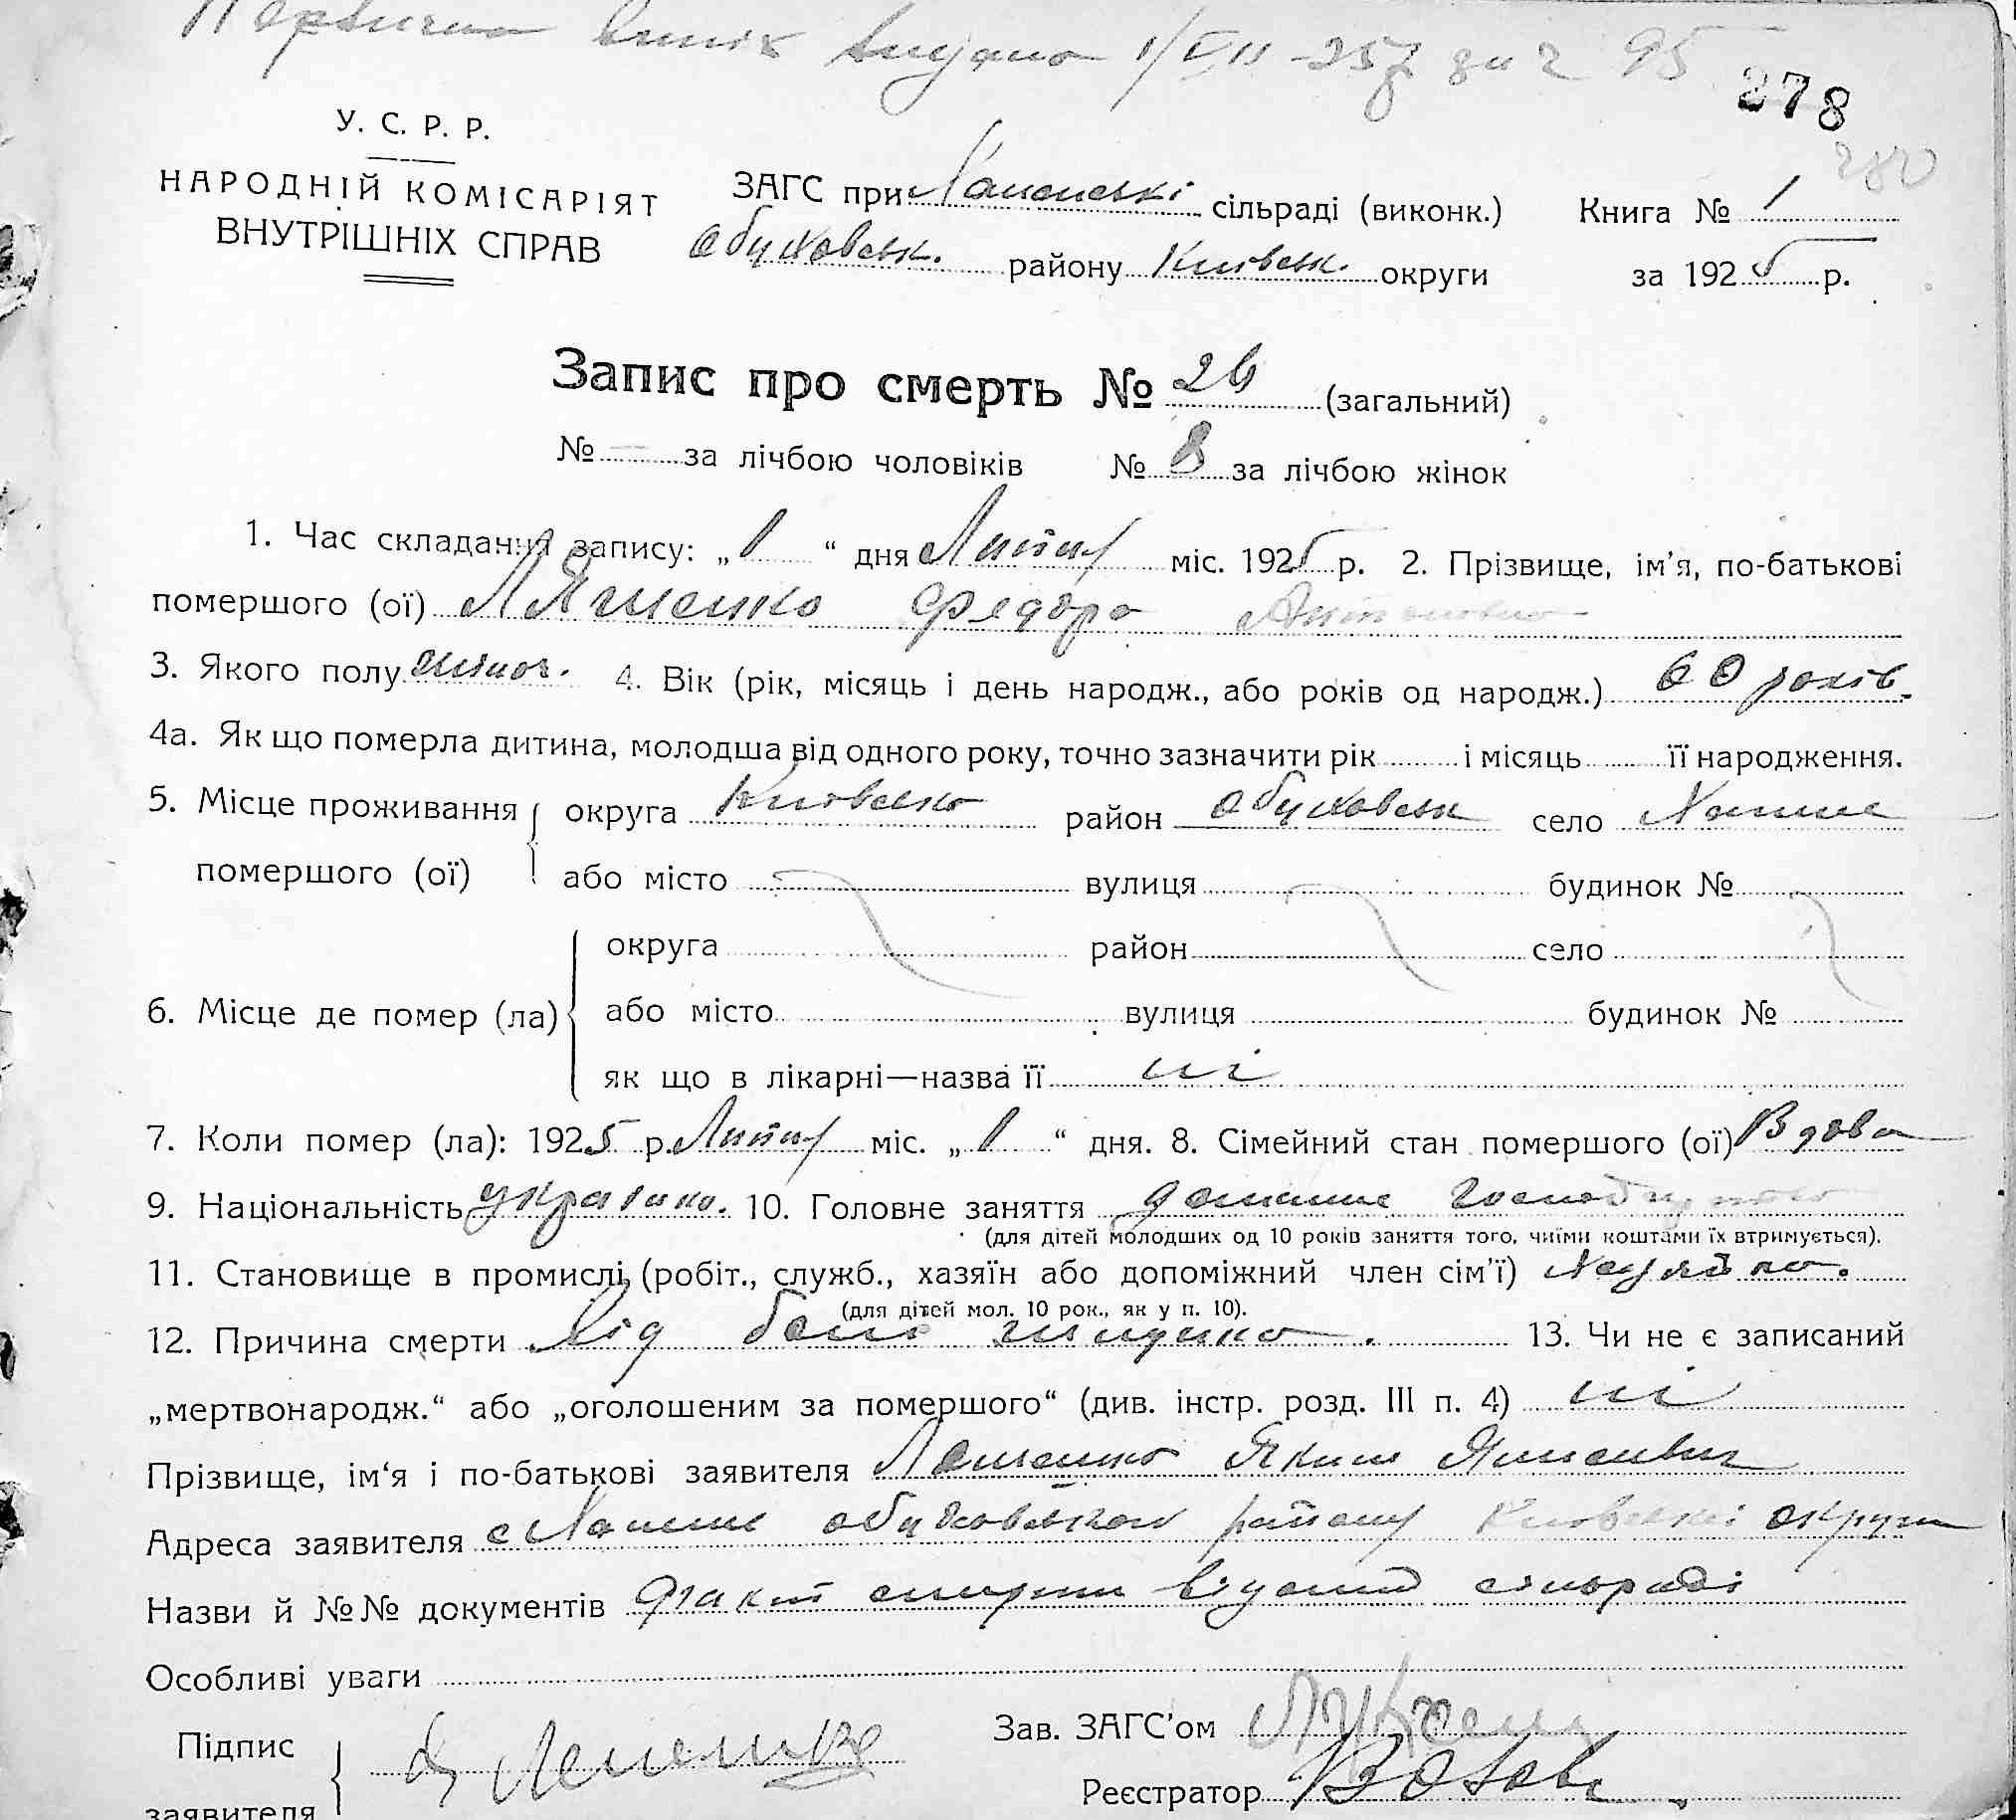 278
У. С. Р. Р.
НАРОДНІЙ КОМІСАРІЯТ
ВНУТРІШНІХ СПРАВ
ЗАГС при сільраді (виконк.) Книга № 1
Обуховськ. району Київськ. округи за 1925 р.
Запис про смерть № 26 (загальний)
№ — за лічбою чоловіків № 8 за лічбою жінок
1. Час складання запису: „ 1 “ дня Липня міс. 1925 р. 2. Прізвище, ім’я, по-батькові
помершого (ої) Ляшенко Федора Антоновна
3. Якого полу жіноч. 4. Вік (рік, місяць і день народж., або років од народж.) 60 років.
4а. Як що померла дитина, молодша від одного року, точно зазначити рік і місяць її народження.
5. Місце проживання округа Київська район Обуховськ село
помершого (ої) або місто вулиця будинок №
округа район село
6. Місце де помер (ла) або місто вулиця будинок №
як що в лікарні—назва її ні
7. Коли помер (ла): 1925 р. Липня міс. „ 1 “ дня. 8. Сімейний стан помершого (ої) Вдова
9. Національність україн. 10. Головне заняття домашнє
(для дітей молодших од 10 років заняття того, чиїми коштами їх втримується).
11. Становище в промислі (робіт., служб., хазяїн або допоміжний член сім’ї)
(для дітей мол. 10 рок., як у п. 10).
12. Причина смерти Від болі шлунка. 13. Чи не є записаний
„мертвонародж.“ або „оголошеним за помершого“ (див. інстр. розд. III п. 4) ні
Прізвище, ім‘я і по-батькові заявителя Ляшенко Яким
Адреса заявителя с обуховського району Київської округи
Назви й №№ документів Факт смерти відомий сільраді
Особливі уваги
Підпис
заявителя
Зав. ЗАГС’ом
Реєстратор